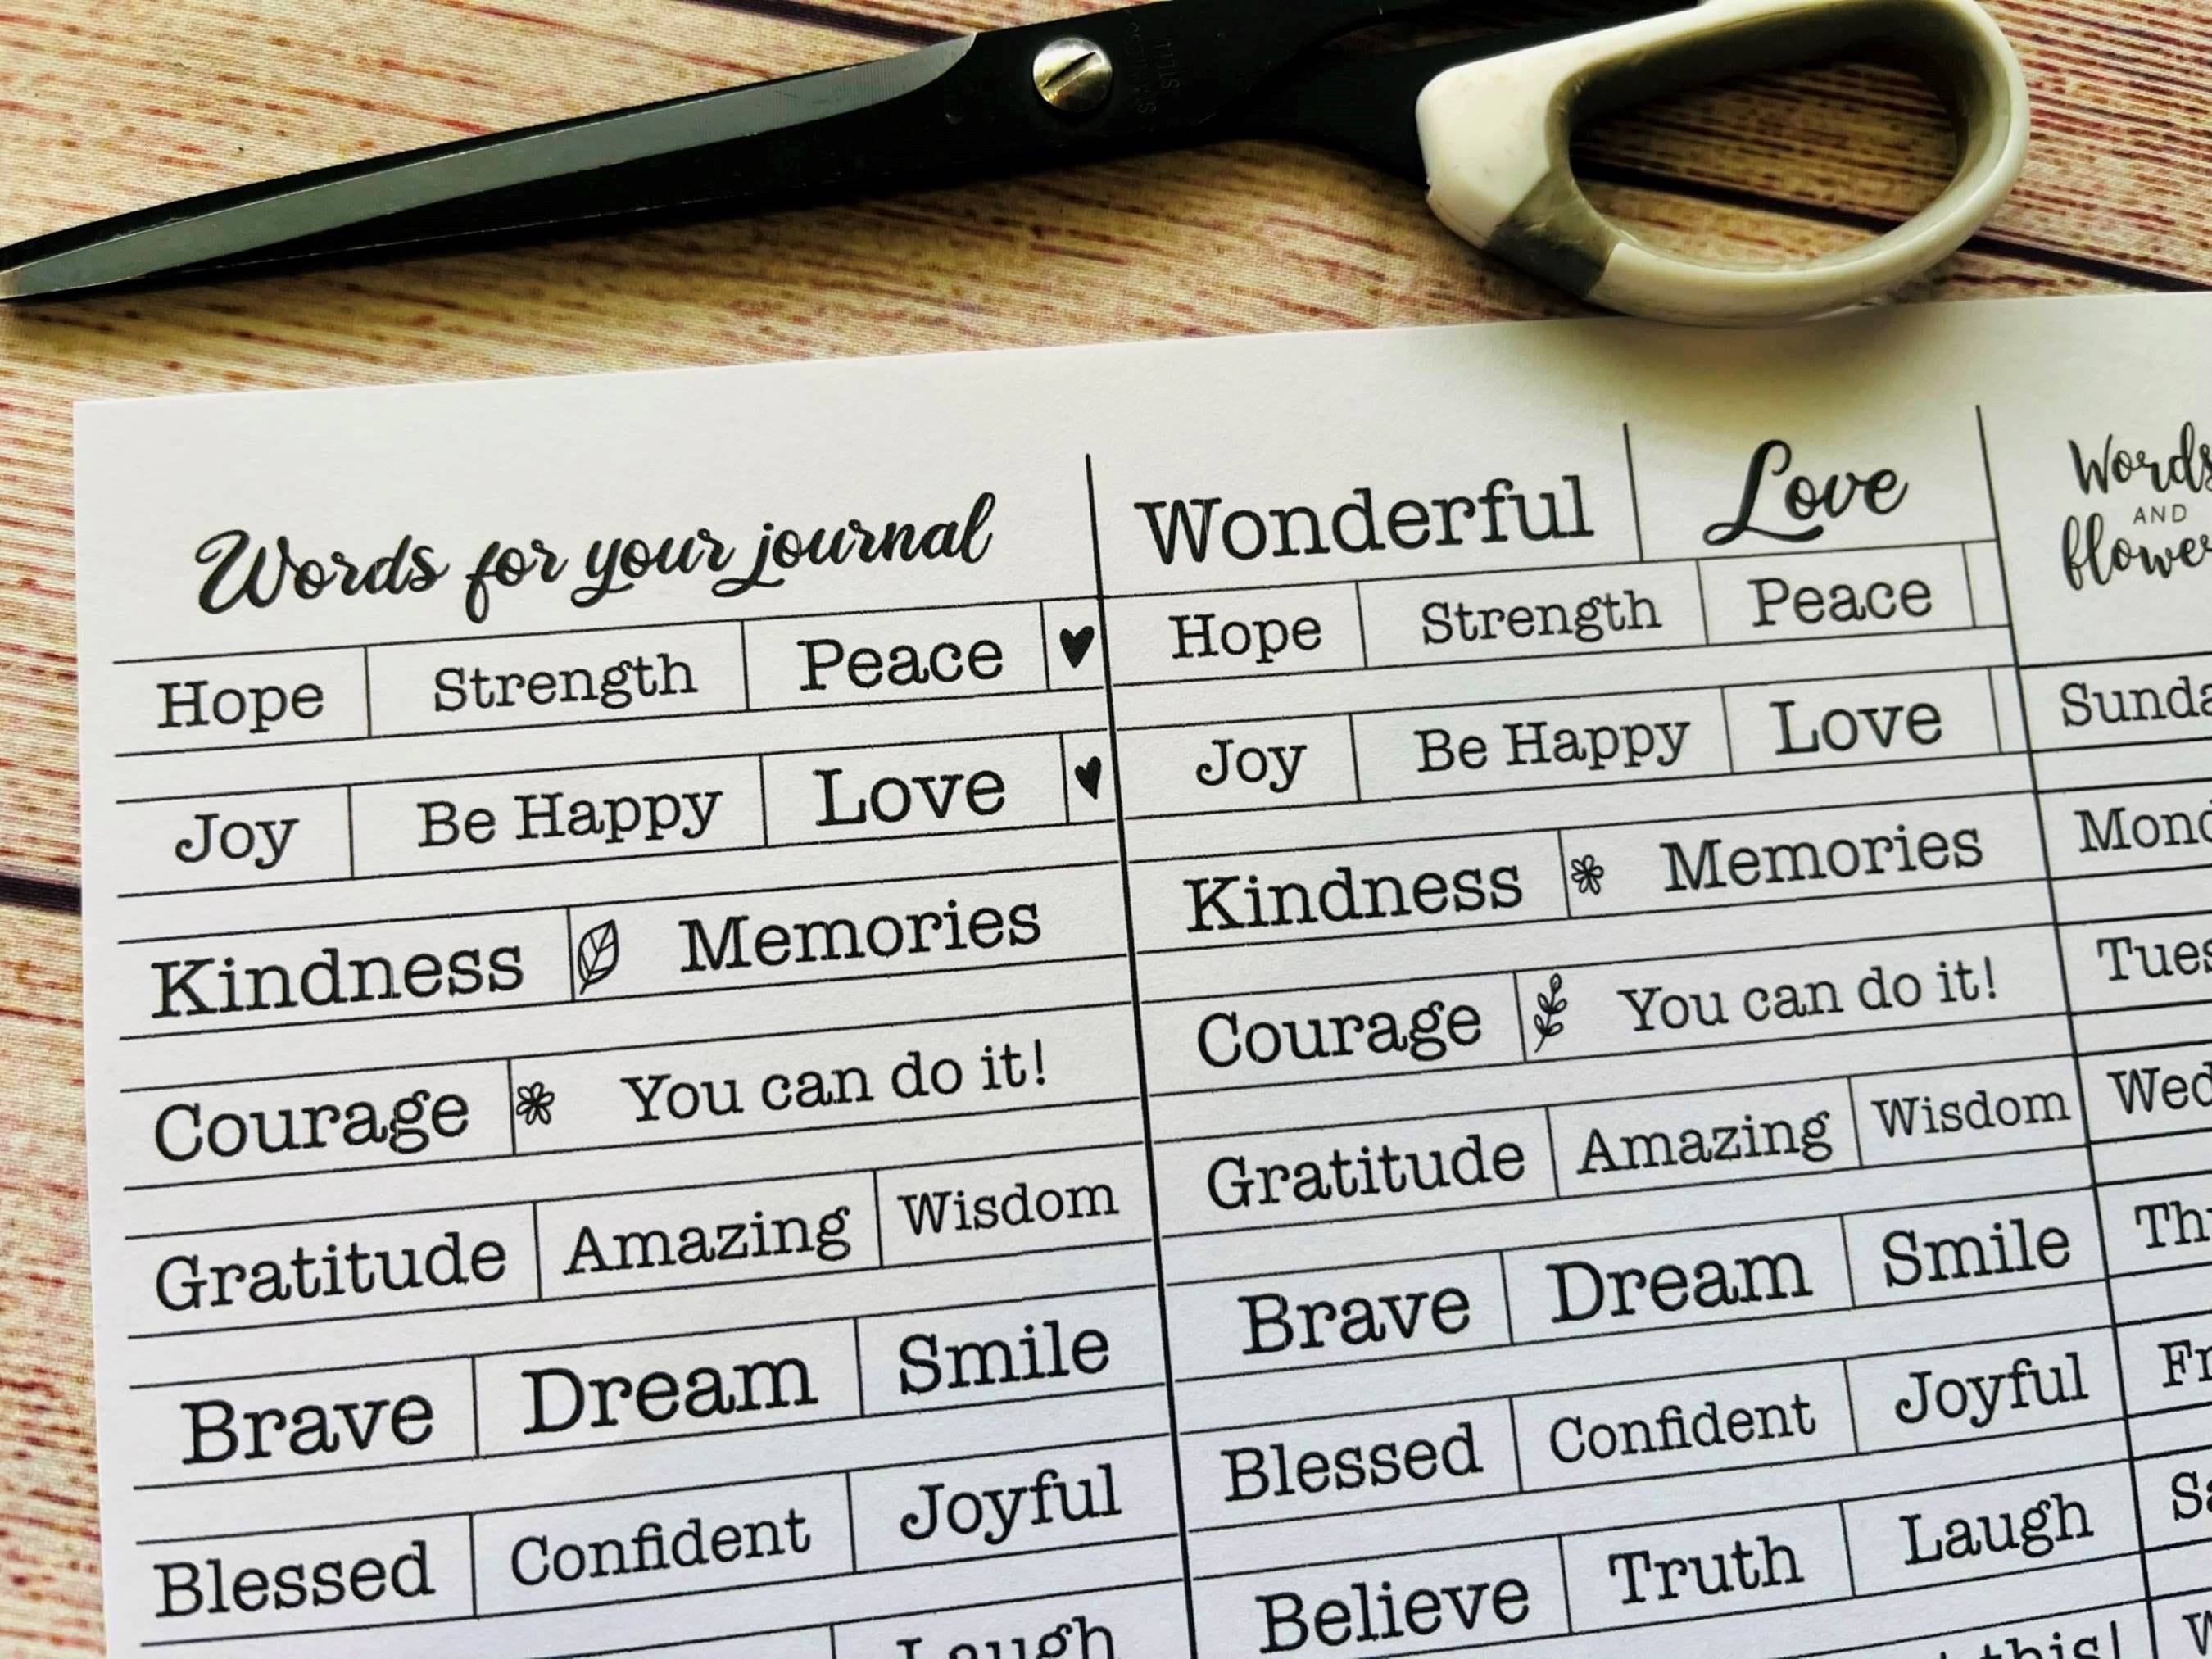 Words for your journal
Hope Strength Peace
Joy Be Happy Love
Kindness Memories
Courage You can do it!
Gratitude Amazing Wisdom
Brave Dream Smile
Blessed Confident Joyful
Laugh
Wonderful Love
Hope Strength Peace
Joy Be Happy Love
Kindness Memories
Courage You can do it!
Gratitude Amazing Wisdom
Brave Dream Smile
Blessed Confident Joyful
Believe Truth Laugh
this!
Words
AND
flowe
Sunda
Mond
Tues
Wed
Th
Fr
Sa
W